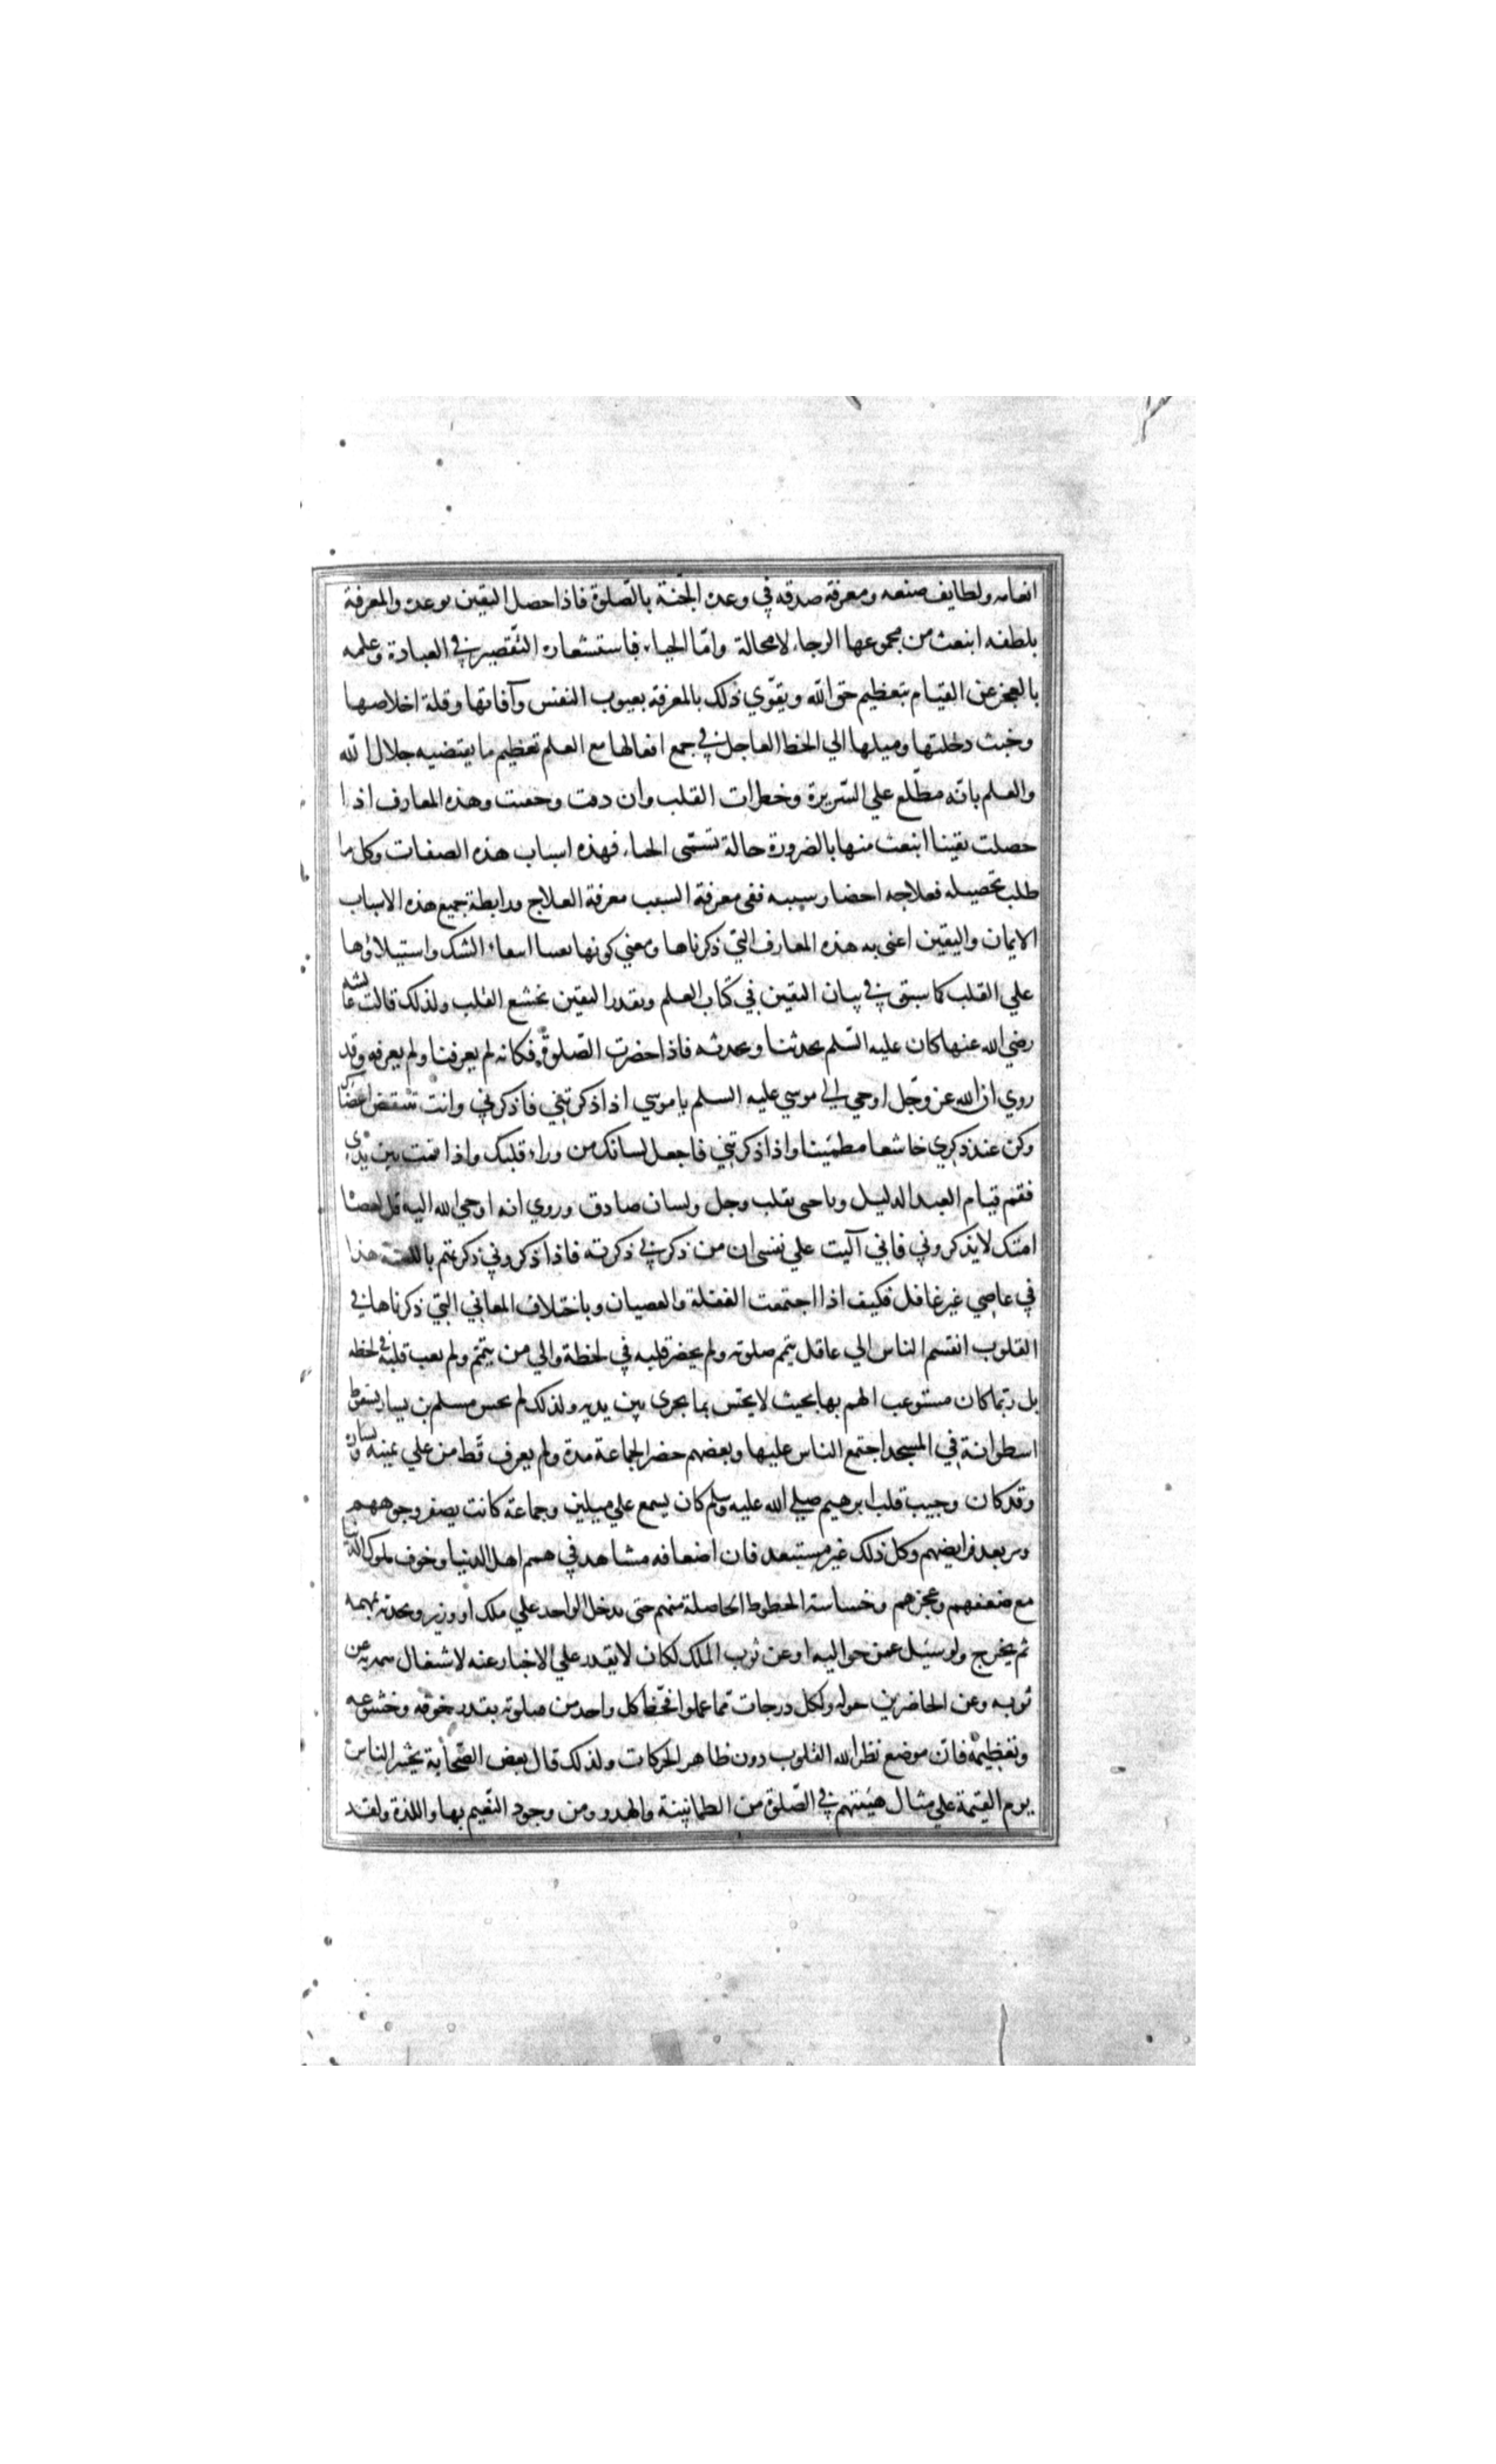 انعامه ولطايف صنعه ومعرفة صدقه في وعده الجنة بالصلوة فاذا حصل اليقين بوعده والمعرفة
بلطفه انبعث من مجموعها الرجاء لا محالة وامّا الحياء فباستشعاره التقصير في العبادة وعلمه
بالعجز عن القيام بتعظيم حق الله ويقوّي ذلك بالمعرفة بعيوب النفس وآفاتها وقلة اخلاصها
وخبث دخلتها وميلها الي الحظ العاجل في جمع افعالها مع العلم تعظيم ما يقتضيه جلال الله
والعلم بانّه مطّلع علي السّريرة وخطرات القلب وان دقت وخفيت وهذه المعارف اذا
حصلت يقينا انبعث منها بالضرورة حالة تسمّى الحياء فهذه اسباب هذه الصفات وكل ما
طلب تحصيله فعلاجه احضار سببه ففي معرفة السبب معرفة العلاج ورابطة جميع هذه الاسباب
الايمان واليقين اعني به هذه المعارف التي ذكرناها ومعني كونها يقينا انتفاء الشك واستيلاؤها
علي القلب كما سبق في بيان اليقين في كتاب العلم وبقدر اليقين تخشع القلب ولذلك قالت عايشه
رضي الله عنها كان عليه السّلم يحدثنا ونحدثه فاذا حضرت الصّلوة فكانه لم يعرفنا ولم يعرفه وقد
روي ان الله عز وجّل اوحي الي موسي عليه السلم يا موسي اذا ذكرتني فاذكرني وانت تنتقض اعضاك
وكن عند ذكري خاشعا مطمئنا واذا ذكرتني فاجعل لسانك من وراء قلبك واذا قمت بين يديّ
فقم قيام العبد الذليل وناجني بقلب وجل ولسان صادق وروي انه اوحي الله اليه قل لعصاة
امتك لا يذكروني فاني آليت علي نفسي ان من ذكرني ذكرته فاذا ذكروني ذكرتهم باللعنة هذا
في عاصي غير غافل فكيف اذا اجتمعت الغفلة والعصيان وباختلاف المعاني التي ذكرناها في
القلوب انقسم الناس الي عاقل يتم صلوته ولم يحضر قلبه في لحظة والي من يتمّم ولم يغب قلبه في لحظه
بل ربّما كان مستوعب الهم بها بحيث لا يحسّ بما يجري بين يديه ولذلك لم يحس مسلم بن يسار بسقوط
اسطوانة في المسجد اجتمع الناس عليها وبعضهم حضر الجماعة مدة ولم يعرف قط من علي يمينه ويساره
وقد كان وجيب قلب ابرهيم صلي الله عليه وسلم كان يسمع علي ميلين وجماعة كانت يصفر وجوههم
وترتعد فرايضهم وكل ذلك غير مستبعد فان اضعافه مشاهد في همم اهل الدنيا وخوف ملوك الدنيا
مع ضعفهم وعجزهم وخساسة الحظوظ الحاصلة منهم حتى يدخل الواحد علي ملك او وزير ويحدثه بمهمه
ثم يخرج ولو سئل عمن حواليه او عن ثوب الملك لكان لا يقدر علي الاخبار عنه لاشتغال همه به عن
ثوبه وعن الحاضرين حوله ولكل درجات ممّا عملوا فحظ كل واحد من صلوته بقدر خوفه وخشوعه
وتعظيمه فانّ موضع نظر الله القلوب دون ظاهر الحركات ولذلك قال بعض الصّحابة يحشر الناس
يوم القيمة علي مثال هيئتهم في الصّلوة من الطمانينة والهدو ومن وجود النّعيم بها واللذة ولقد